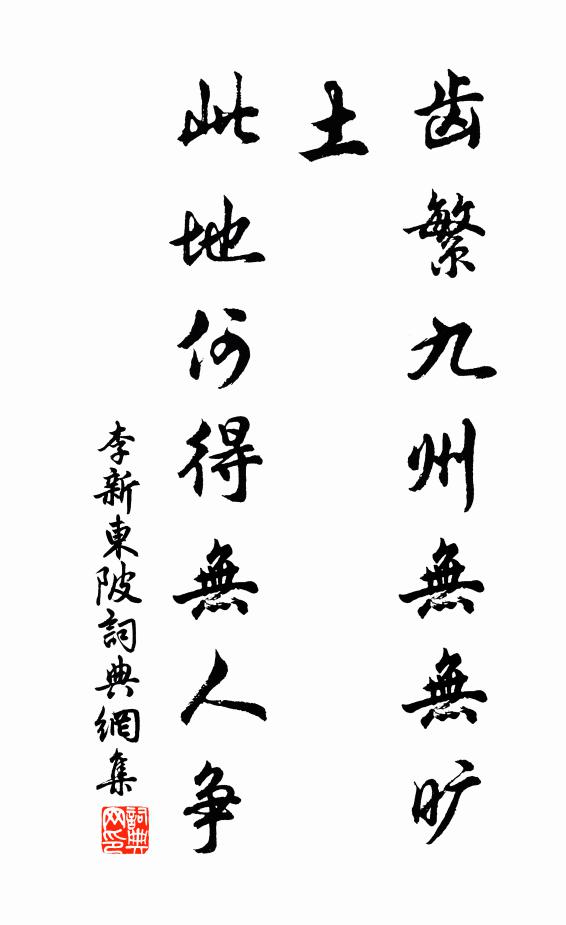 齿繁九州無無旷
土
此地何得無人争
李新東陂詞典網集
詞典
网印